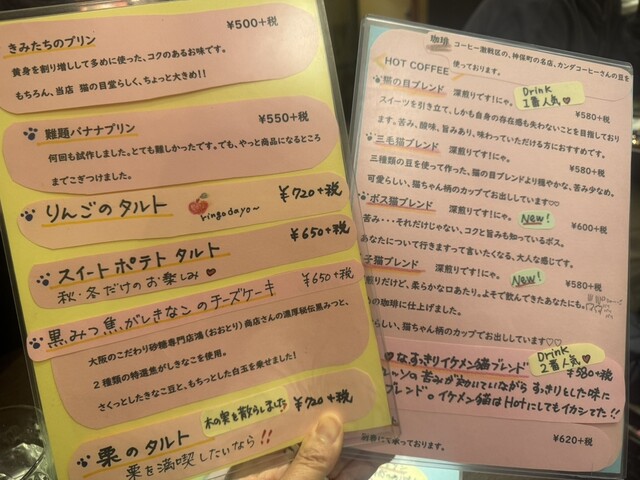 きみたちのプリン ¥500+税
黄身を割り増しして多めに使った、コクのあるお味です。
もちろん、当店 猫の目堂らしく、ちょっと大きめ!!
難題バナナプリン ¥550+税
何回も試作しました。とても難しかったです。でも、やっと商品になるところ
までこぎつけました。
りんごのタルト ringodayo~ ¥720+税
スイートポテトタルト ¥650+税
秋・冬だけのお楽しみ♥
黒みつ焦がしきなこのチーズケーキ ¥650+税
大阪のこだわり砂糖専門店鴻(おおとり)商店さんの濃厚秘伝黒みつと、
2種類の特選焦がしきなこを使用。
さくっとしたきなこ豆と、もちっとした白玉を乗せました!
栗のタルト 木の実を散らしました ¥720+税
栗を満喫したいなら!!
珈琲 コーヒー激戦区の、神保町の名店、カンダコーヒーさんの豆を
使っております。
HOT COFFEE
Drink
1番人気♡
猫の目ブレンド 深煎りです!にゃ。 ¥580+税
スイーツを引き立て、しかも自身の存在感も失わないことを目指しており
ます。苦み、酸味、旨みあり、味わっていただける方におすすめです。
三毛猫ブレンド 深煎りです!にゃ。 ¥580+税
三種類の豆を使って作った。猫の目ブレンドより穏やかな、苦み少なめ。
可愛らしい、猫ちゃん柄のカップでお出ししています♡♡
ボス猫ブレンド 深煎りです!にゃ。 New! ¥600+税
苦み・・・それだけじゃない、コクと旨みも知っているボス。
あなたについて行きますって言いたくなる、大人な感じです。
子猫ブレンド 深煎りです!にゃ。 New! ¥580+税
煎りだけど、柔らかな口あたり。よそで飲んできたあなたにも。
の珈琲に仕上げました。
らしい、猫ちゃん柄のカップでお出ししています♡♡
なすっきりイケメン猫ブレンド Drink
2番人気♥
¥580+税
苦みが効いていながらすっきりとした味に
ブレンド。イケメン猫はHotにしてもイカシてた!!
¥620+税
て承っております。